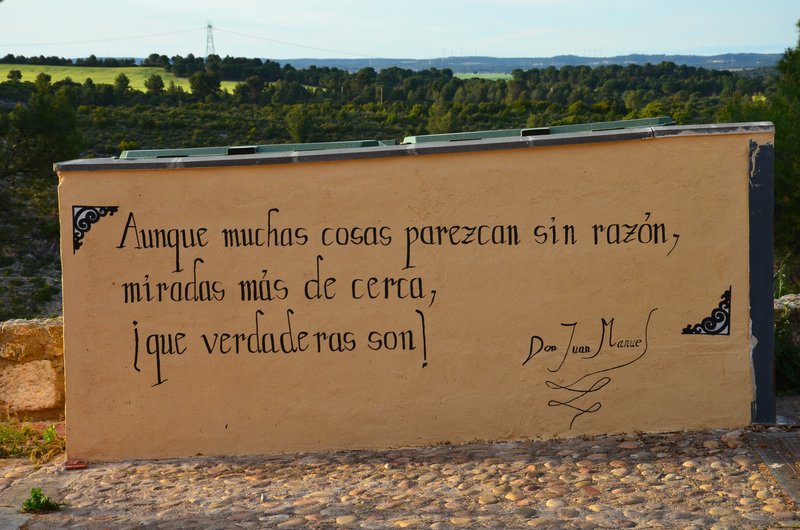 Aunque muchas cosas parezcan sin razón,
miradas más de cerca,
¡que verdaderas son!
Don Juan Manuel